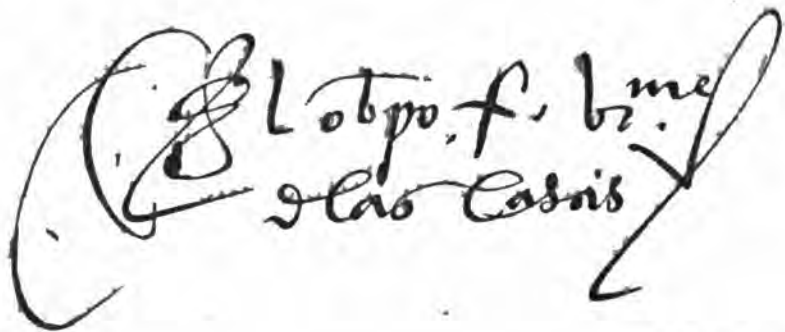 El obpo. f. br.me
de las Casas